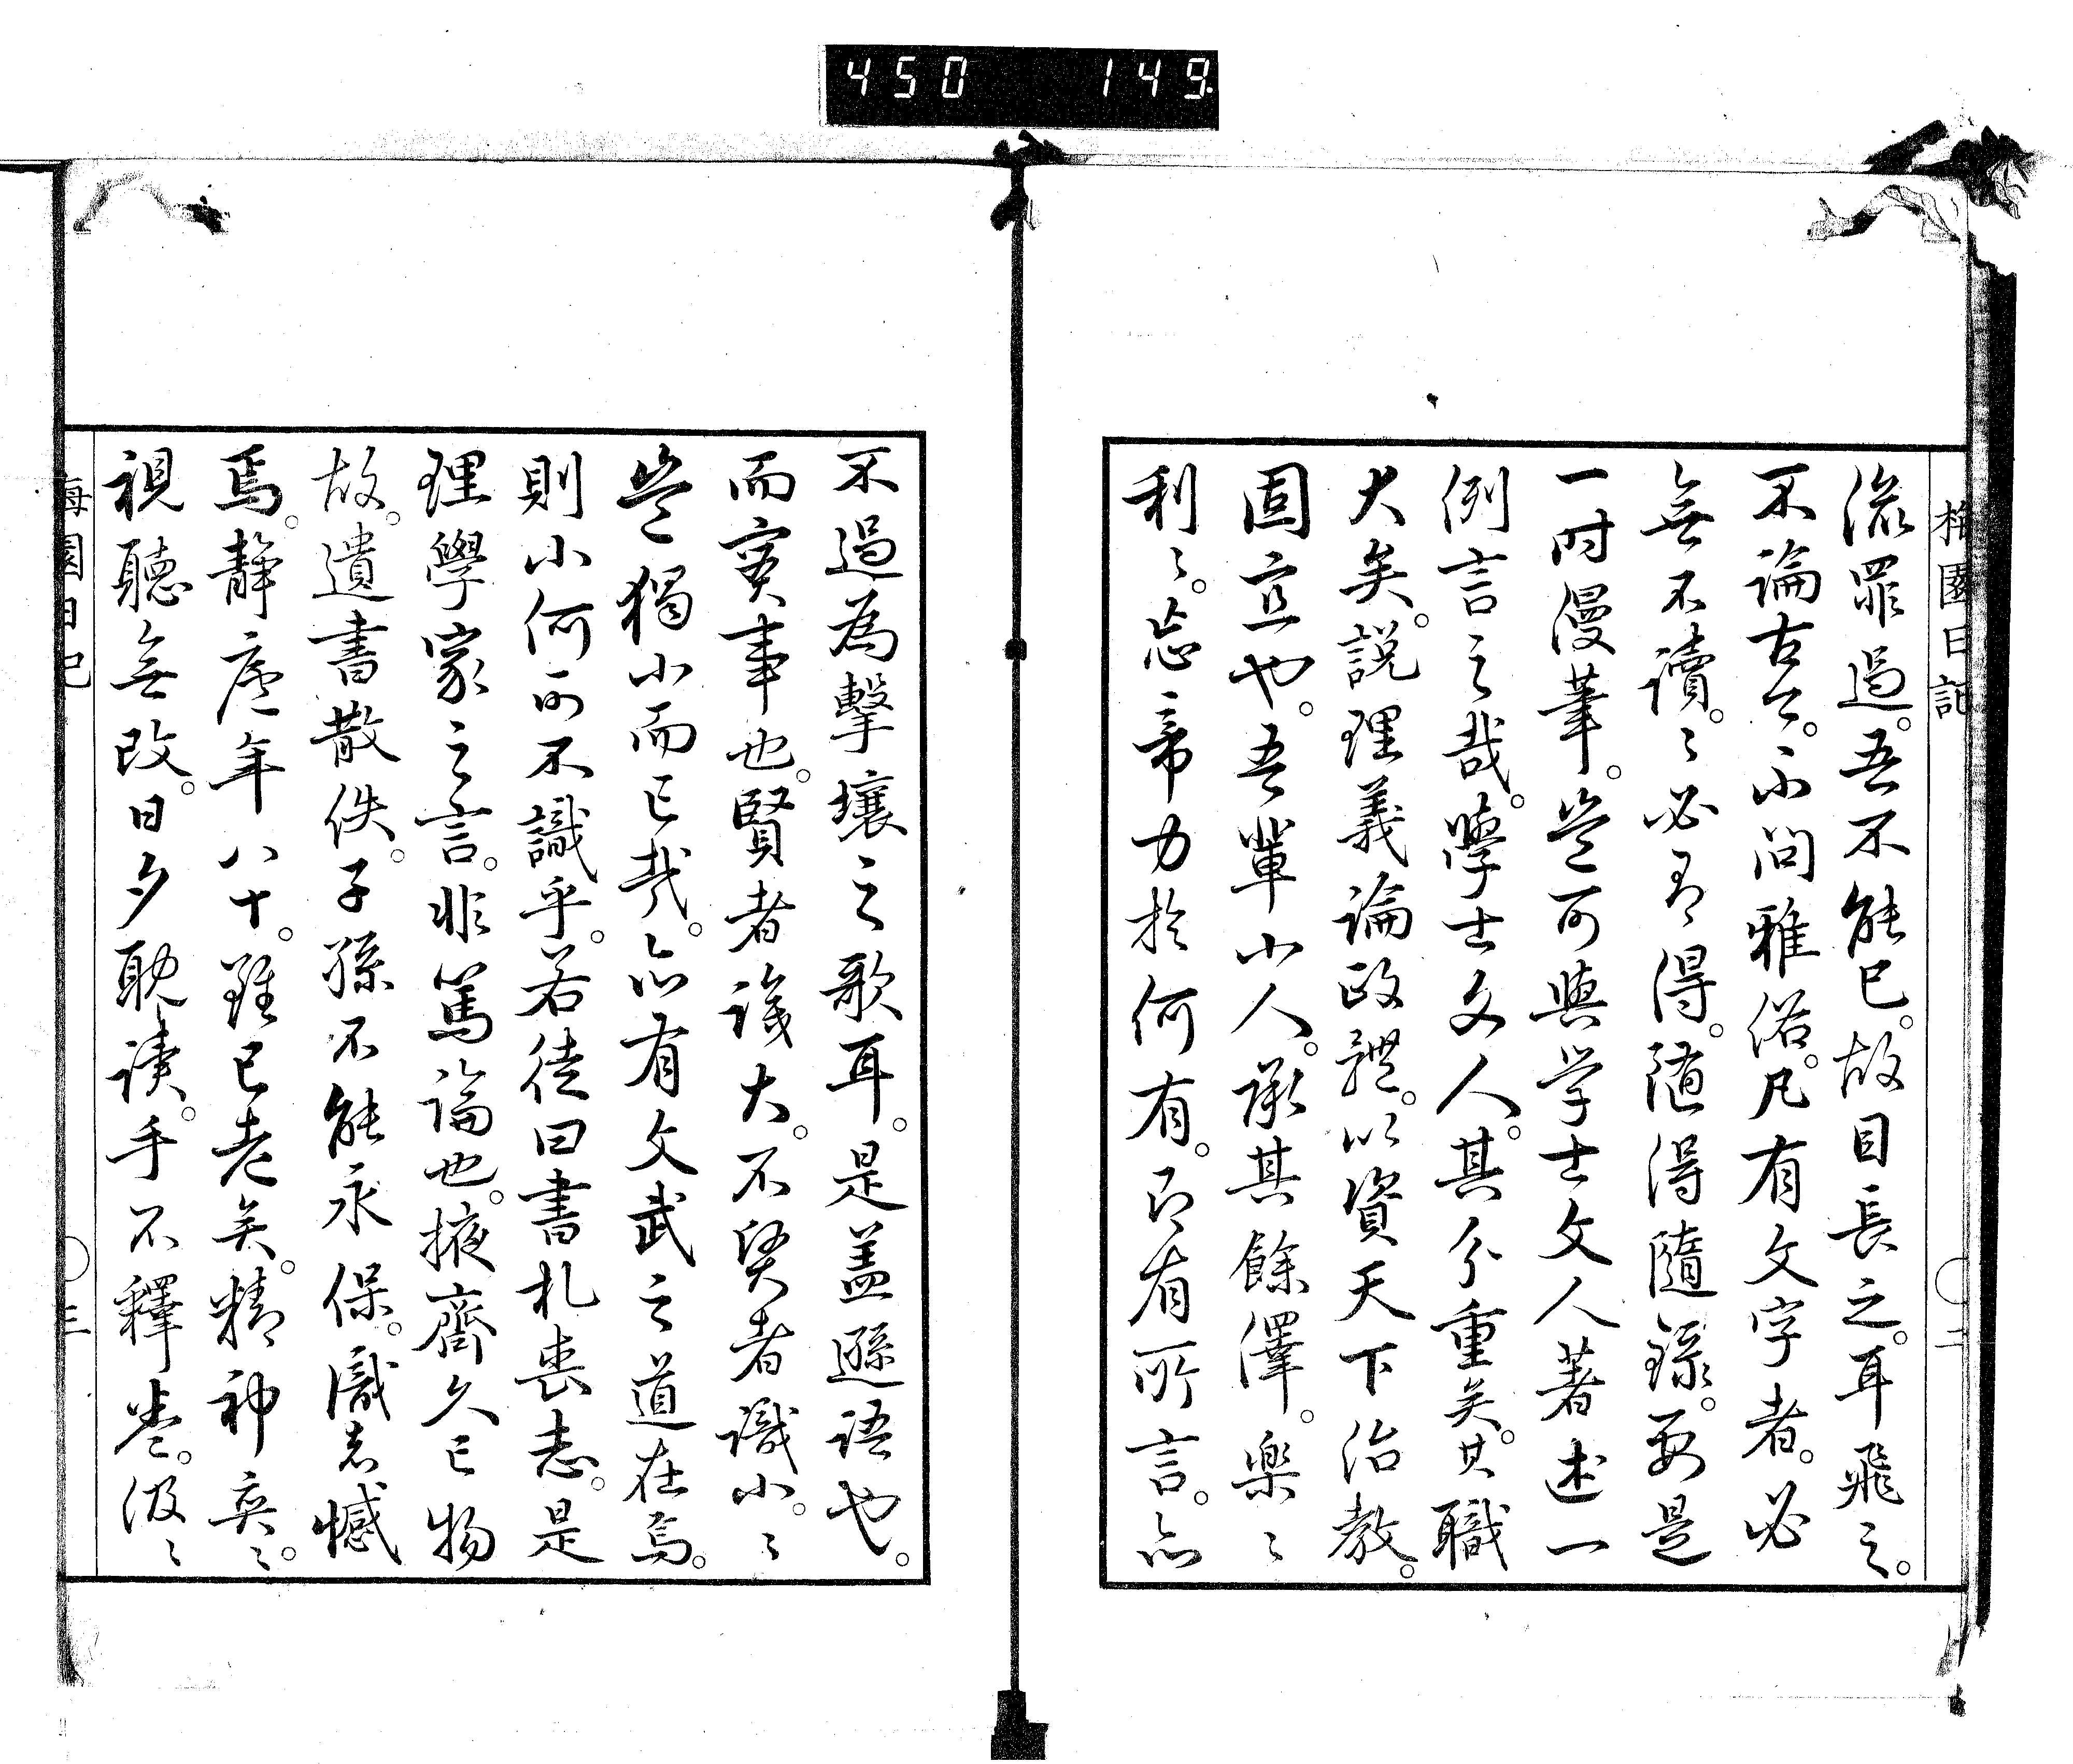 450 149
梅園日記 二
流罪過。吾不能已。故目長之。耳飛之。
不論古今。不問雅俗。凡有文字者。必
無不讀。〻必有得。随得隨録。要是
一時漫筆。豈可與学士文人著述一
例言之哉。學士文人。其分重矣。其職
大矣。説理義論政體。以資天下治教。
固宜也。吾輩小人。承其餘澤。楽〻
利〻。忘帝力於何有。即有所言。亦
不過為擊壤之歌耳。是盖遜語也。
而実事也。賢者識大。不賢者識小。〻
豈獨小而已哉。亦有文武之道在焉。
則小何可不識乎。若徒曰書札喪志。是
理學家之言。非篤論也。掖齋久已物
故。遺書散佚。子孫不能永保。識者憾
焉。静廬年八十。雖已老矣。精神奕〻。
視聽無改。日夕耽讀。手不釋巻。汲〻
梅園日記 三